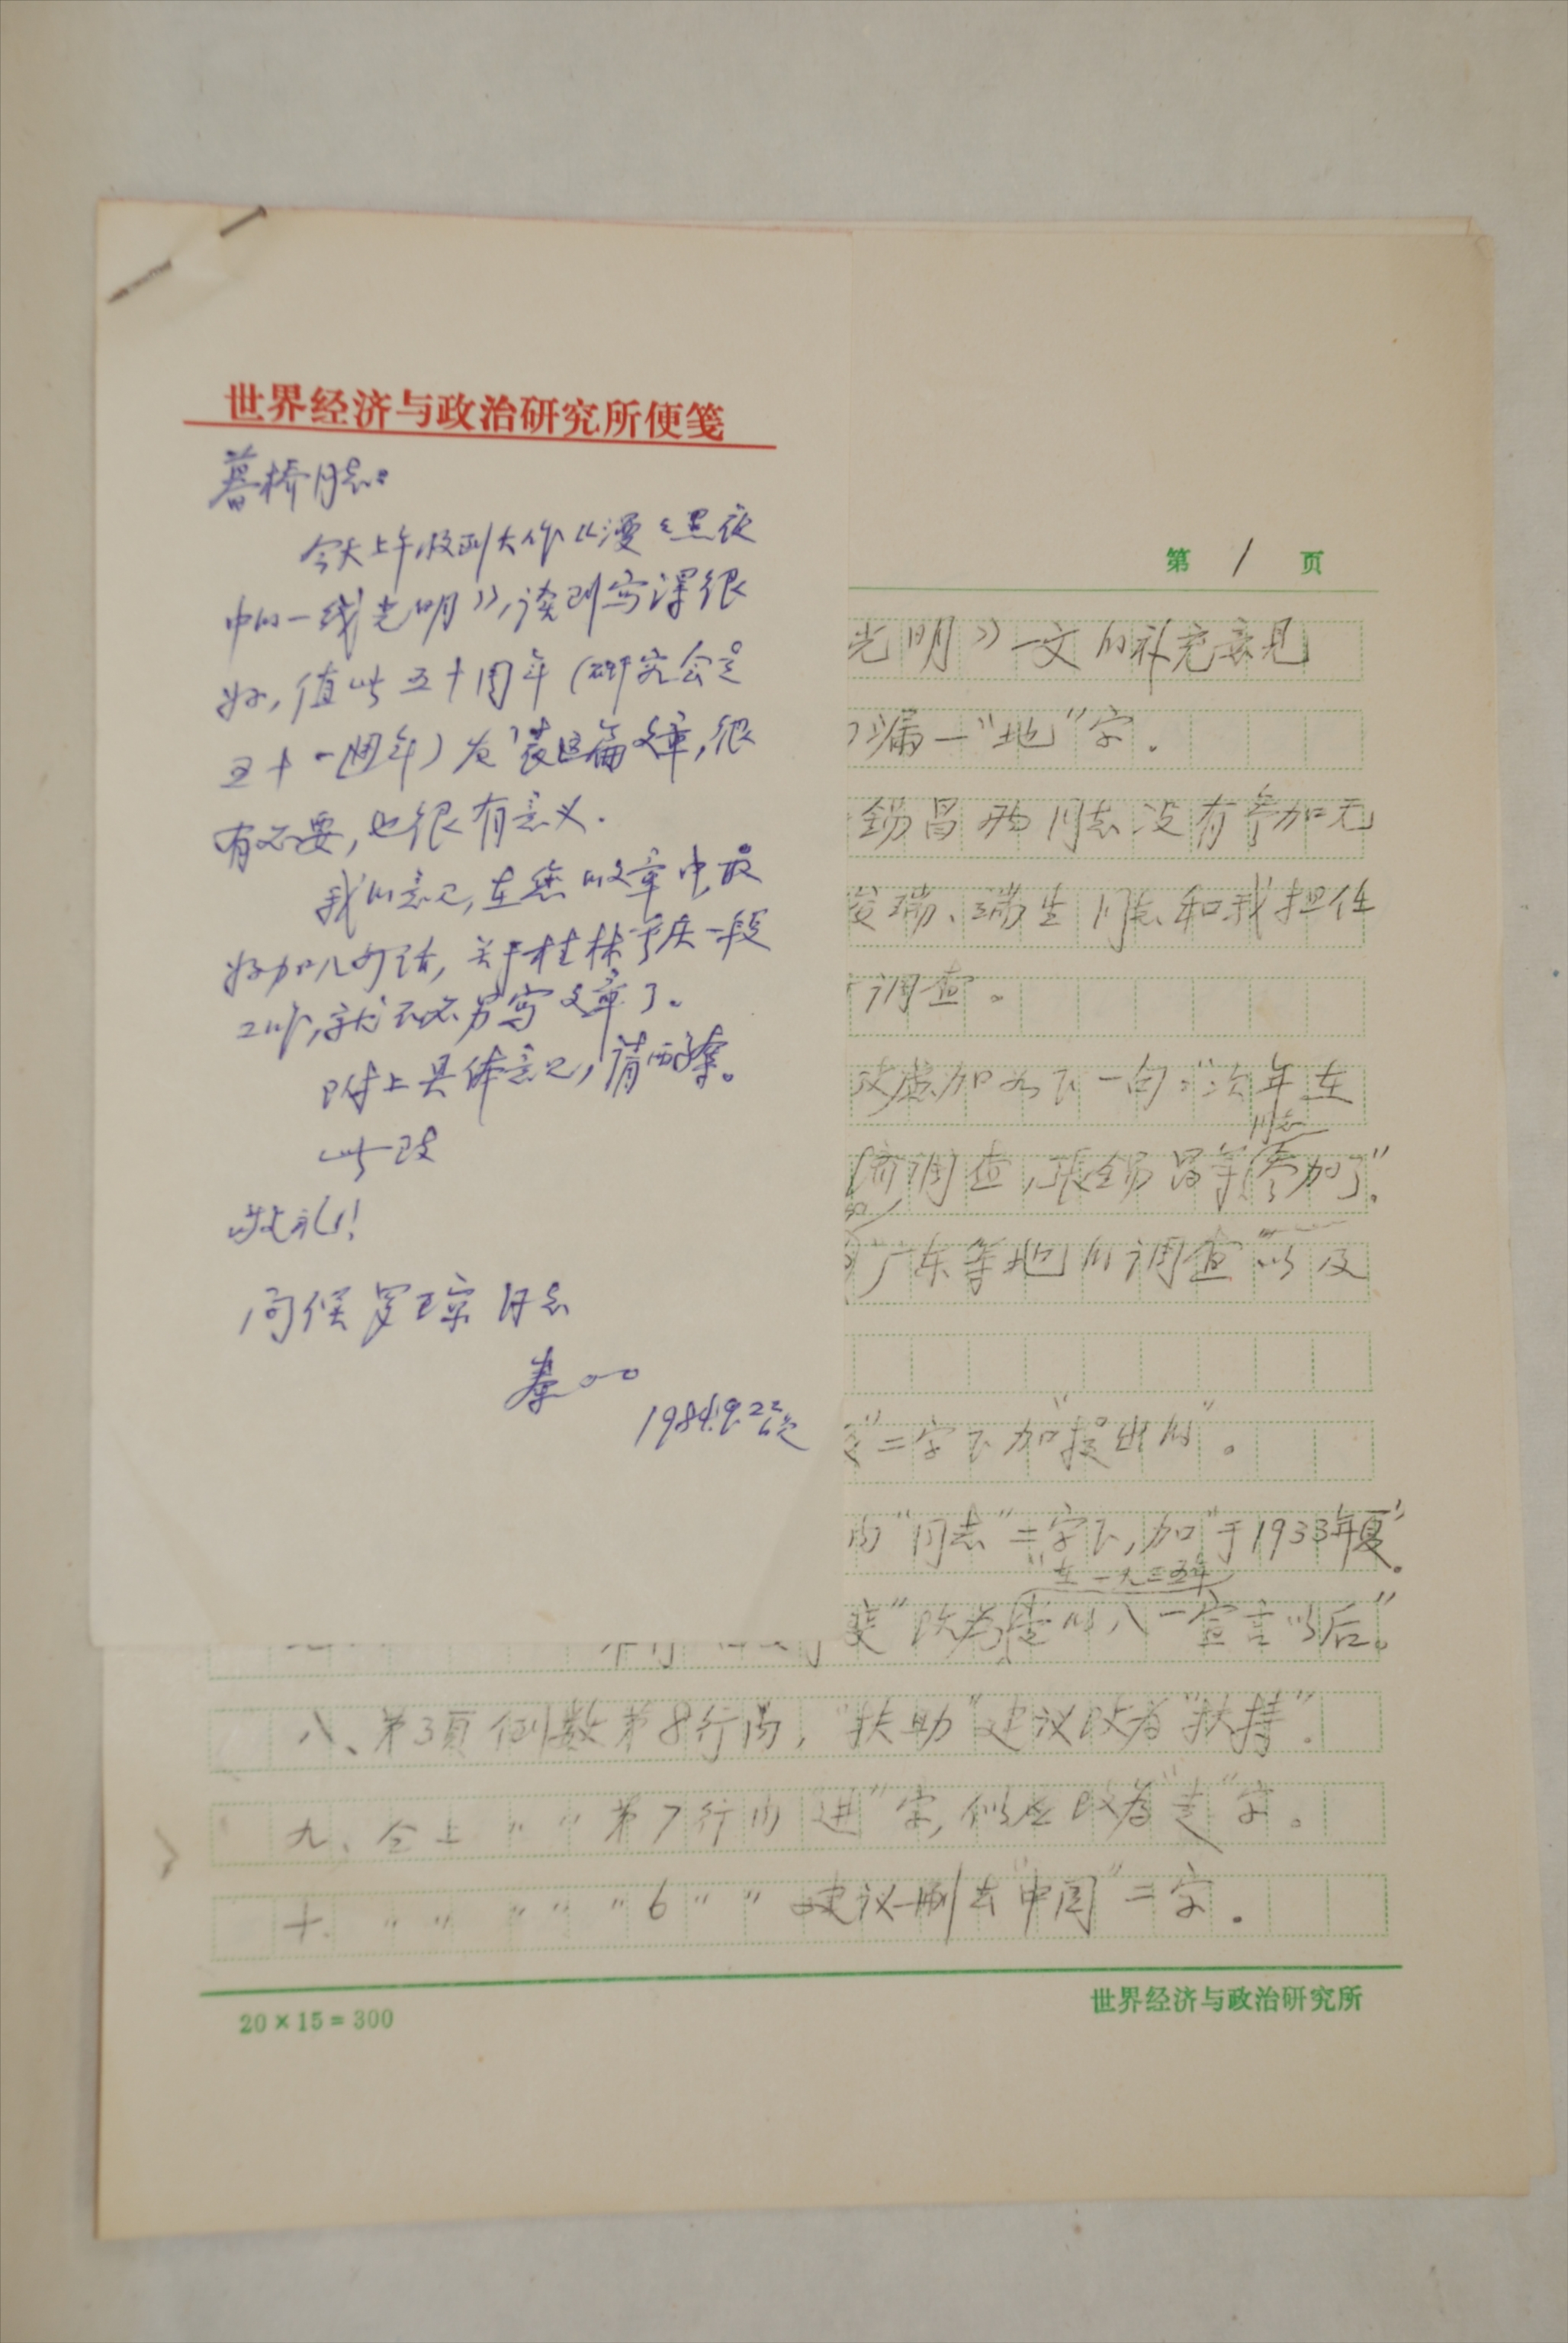 世界经济与政治研究所便笺
暮桥同志:
今天上午收到大作《漫漫黑夜
中的一线光明》,读到写得很
好,值此五十周年(研究会是
五十一周年)发表这篇文章,很
有必要,也很有意义.
我的意见,在您的文章中最
好加几句话,关于桂林一段
工作,就不必另写文章了。
附上具体意见,请酌。
此致
敬礼!
问候罗琼同志
秦
1984.9.22
第 1 页
光明》一文的补充意见
漏一“地”字.
锡昌两同志没有参加无
瑞、瑞生同志和我担任
调查。
考虑加如下一句:“次年在
同志
调查,张锡昌等参加了”.
广东等地的调查”以及
”二字下加“提出的”。
内“同志”二字下,加“于1933年夏”.
“在一九三五年
”改为党的八一宣言以后”。
八、第3页倒数第8行内,“扶助”建议改为“扶持”.
九、仝上 〃 〃 第7行内“进”字,似应改为“走”字。
十. 〃 〃 〃 〃 〃 6 〃 〃 建议删去“中国”二字.
20×15=300
世界经济与政治研究所